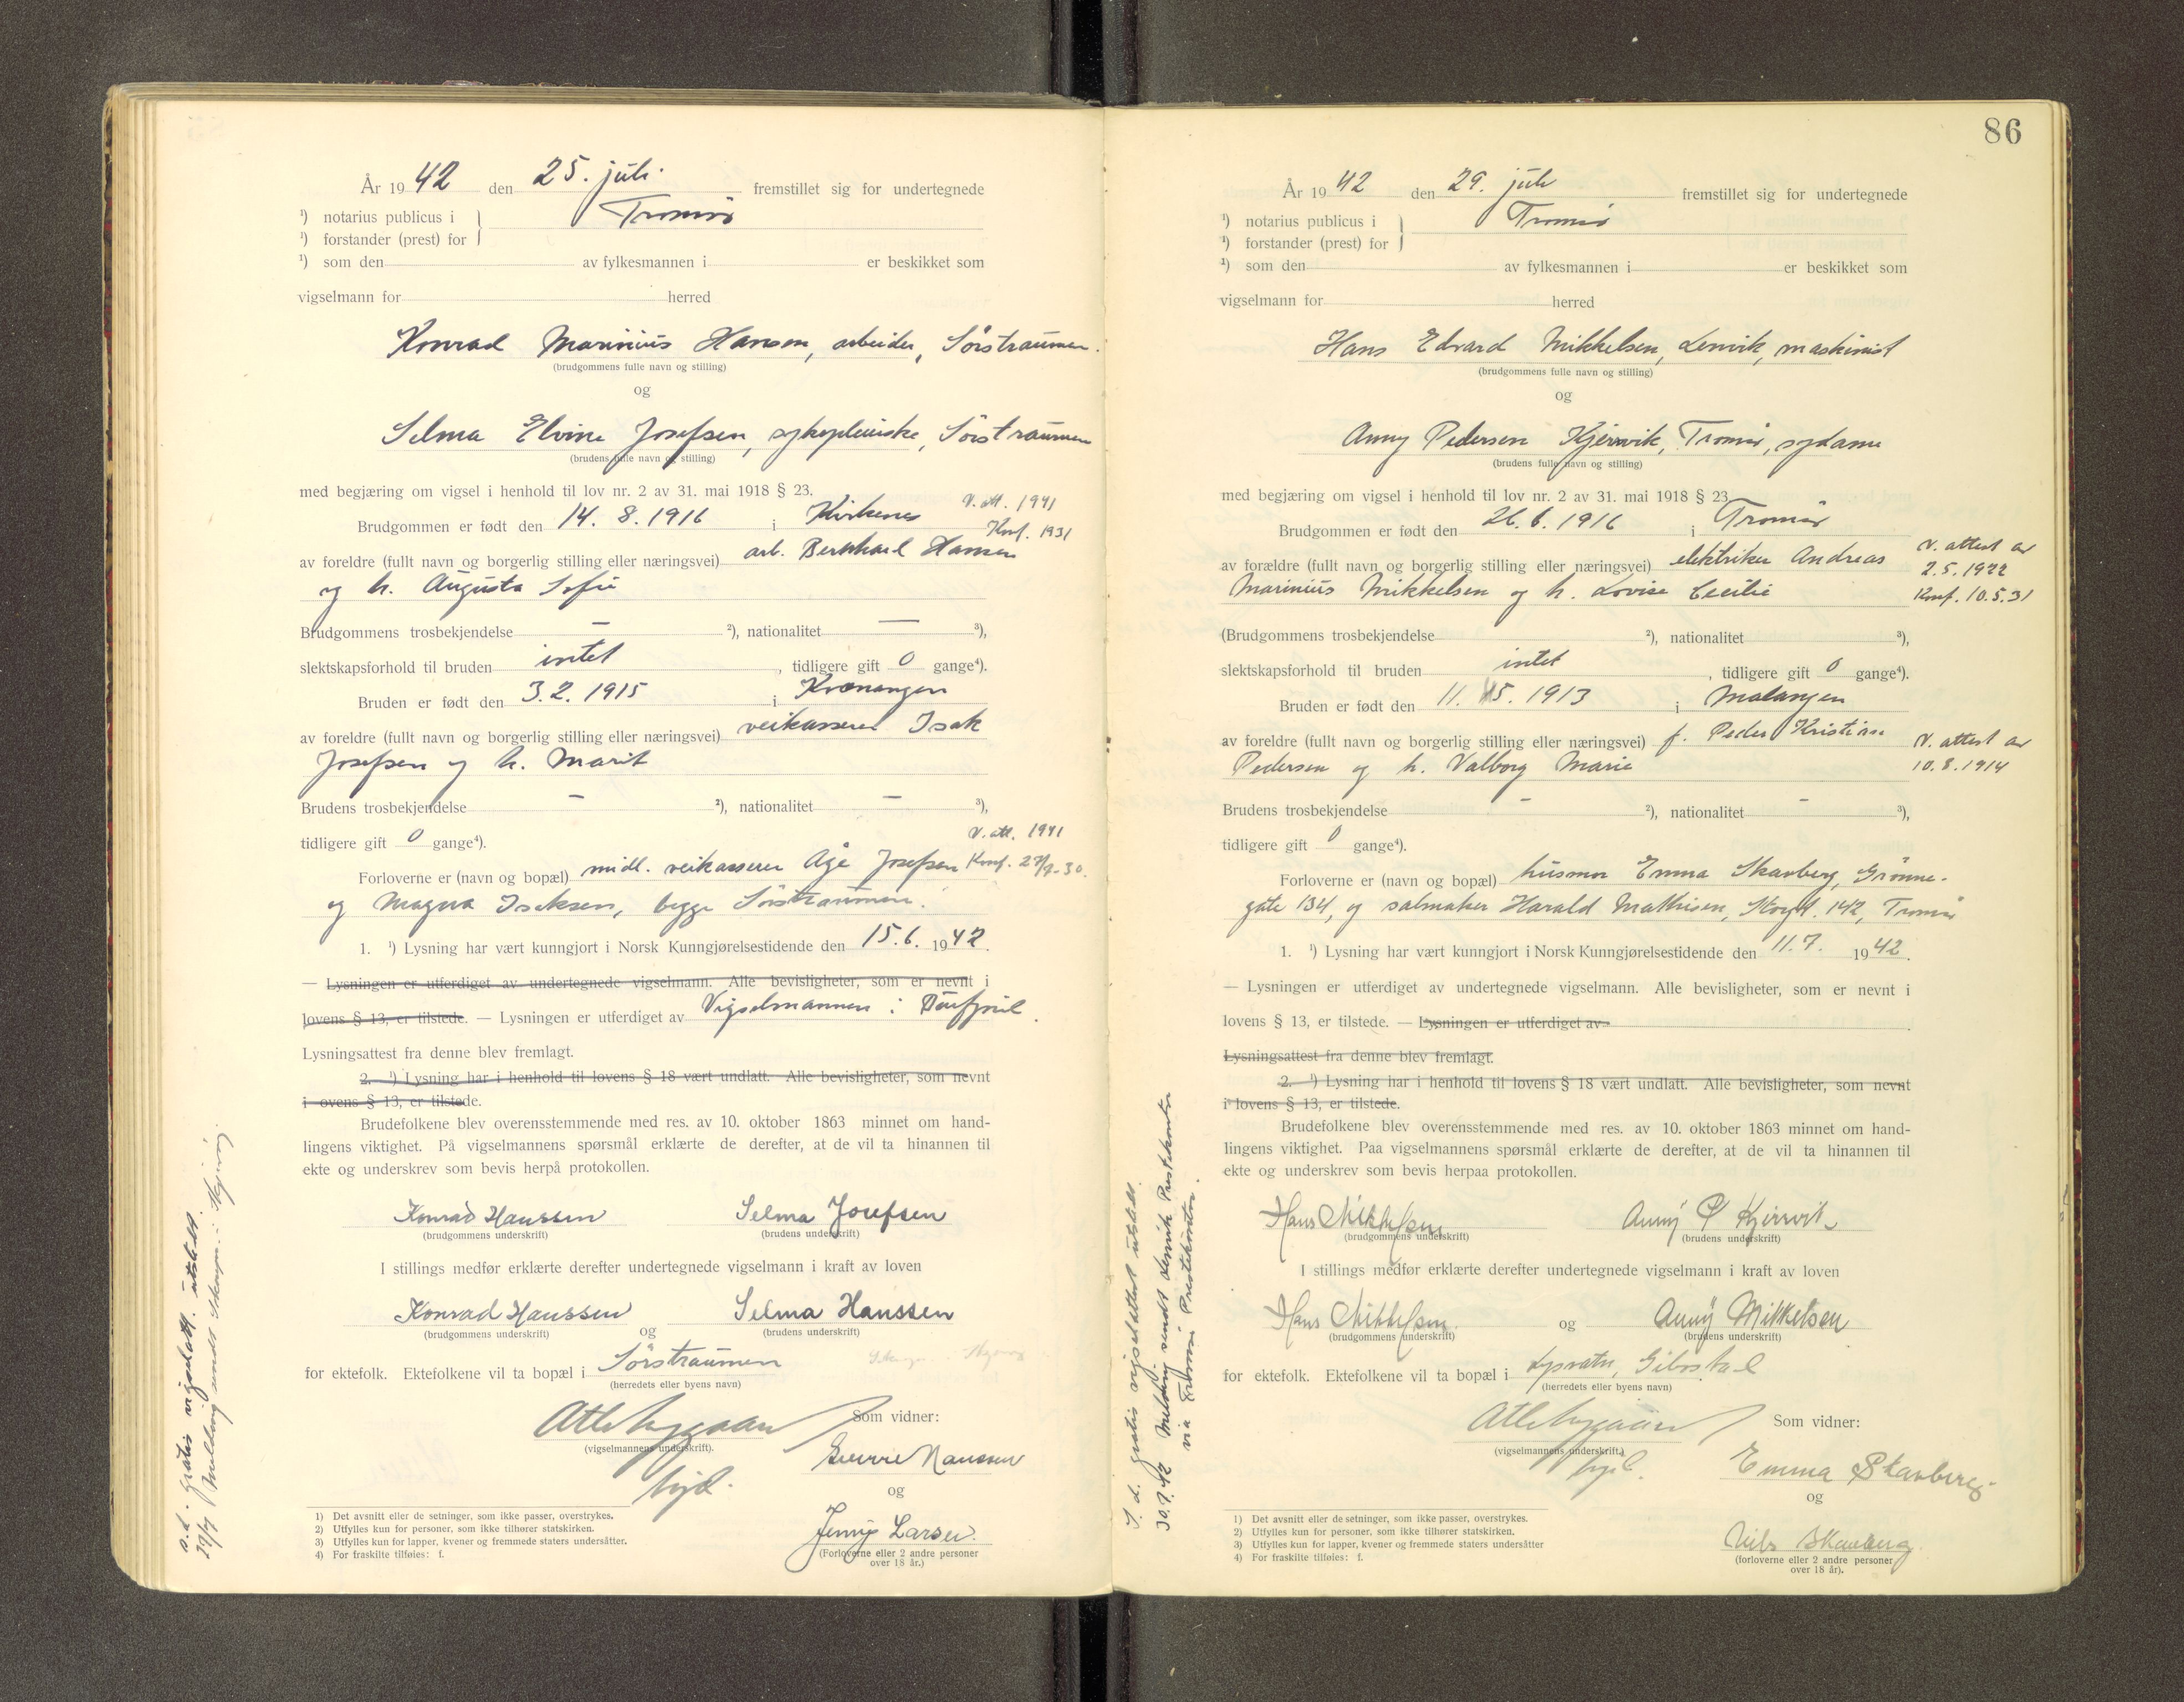 År 1942 den 25. juli fremstillet sig for undertegnede
¹) notarius publicus i } Tromsö
¹) forstander (prest) for
¹) som den av fylkesmannen i er beskikket som
vigselmann for herred
Konrad Marinius Hansen, arbeider, Sörstraumen.
(brudgommens fulle navn og stilling)
og
Selma Elvine Josefsen, sykepleierske, Sörstraumen
(brudens fulle navn og stilling)
med begjæring om vigsel i henhold til lov nr. 2 av 31. mai 1918 § 23.
V. att. 1941
Brudgommen er født den 14. 8. 1916 i Kirkenes
Konf. 1931
av foreldre (fullt navn og borgerlig stilling eller næringsvei) arb. Bernhard Hansen
og h. Augusta Sofie
Brudgommens trosbekjendelse — ²), nationalitet — ³),
slektskapsforhold til bruden intet, tidligere gift 0 gange⁴).
Bruden er født den 3. 2. 1915 i Kvænangen
av foreldre (fullt navn og borgerlig stilling eller næringsvei) veikasserer Isak
Josefsen og h. Marit
Brudens trosbekjendelse — ²), nationalitet — ³),
V. att. 1941
tidligere gift 0 gange⁴).
Forloverne er (navn og bopæl) midl. veikasserer Åge Josefsen Konf. 27/7-30.
og Magna Isaksen, begge Sörstraumen.
1. ¹) Lysning har vært kunngjort i Norsk Kunngjørelsestidende den 15.6. 1942.
— Lysningen er utferdiget av undertegnede vigselmann. Alle bevisligheter, som er nevnt i
lovens § 13, er tilstede. — Lysningen er utferdiget av Vigselmannen i
Lysningsattest fra denne blev fremlagt.
2. ¹) Lysning har i henhold til lovens § 18 vært undlatt. Alle bevisligheter, som nevnt
i ovens § 13, er tilstede.
Brudefolkene blev overensstemmende med res. av 10. oktober 1863 minnet om hand-
lingens viktighet. På vigselmannens spørsmål erklærte de derefter, at de vil ta hinannen til
ekte og underskrev som bevis herpå protokollen.
Konrad Hanssen Selma Josefsen
(brudgommens underskrift) (brudens underskrift)
I stillings medfør erklærte derefter undertegnede vigselmann i kraft av loven
Konrad Hanssen og Selma Hanssen
(brudgommens underskrift) (brudens underskrift)
for ektefolk. Ektefolkene vil ta bopæl i Sörstraumen
(herredets eller byens navn)
Som vidner:
(vigselmannens underskrift).
Sverre Hanssen
og
Jenny Larsen.
(Forloverne eller 2 andre personer
over 18 år.)
1) Det avsnitt eller de setninger, som ikke passer, overstrykes.
2) Utfylles kun for personer, som ikke tilhører statskirken.
3) Utfylles kun for lapper, kvener og fremmede staters undersåtter.
4) For fraskilte tilføies: f.
s.d. gratis vigselatt. utstedt.
29/7 Melding sendt Skjervöy.
86
År 1942 den 29. juli fremstillet sig for undertegnede
¹) notarius publicus i } Tromsö
¹) forstander (prest) for
¹) som den av fylkesmannen i er beskikket som
vigselmann for herred
Hans Edvard Mikkelsen, Lenvik, maskinist
(brudgommens fulle navn og stilling)
og
Anny Pedersen Kjervik, Tromsö, sydame
(brudens fulle navn og stilling)
med begjæring om vigsel i henhold til lov nr. 2 av 31. mai 1918 § 23
Brudgommen er født den 26. 6. 1916 i Tromsö
av forældre (fullt navn og borgerlig stilling eller næringsvei) elektriker Andreas
Marinius Mikkelsen og h. Lovise Cecilie
V. attest av
2.5.1922
Konf. 10.5.31
(Brudgommens trosbekjendelse ²), nationalitet ³),
slektskapsforhold til bruden intet, tidligere gift 0 gange⁴).
Bruden er født den 11. 5. 1913 i Malangen
av foreldre (fullt navn og borgerlig stilling eller næringsvei) f. Peder Kristian
Pedersen og h. Valborg Marie
V. attest av
10.8.1914
Brudens trosbekjendelse - ²), nationalitet - ³),
tidligere gift 0 gange⁴).
Forloverne er (navn og bopæl) husmor Emma Skavberg, Grönne-
gate 134, og salmaker Harald Mathisen, Storgt. 142, Tromsö
1. ¹) Lysning har vært kunngjort i Norsk Kunngjørelsestidende den 11.7. 1942.
— Lysningen er utferdiget av undertegnede vigselmann. Alle bevisligheter, som er nevnt i
lovens § 13, er tilstede. — Lysningen er utferdiget av
Lysningsattest fra denne blev fremlagt.
2. ¹) Lysning har i henhold til lovens § 18 vært undlatt. Alle bevisligheter, som nevnt
i lovens § 13, er tilstede.
Brudefolkene blev overensstemmende med res. av 10. oktober 1863 minnet om hand-
lingens viktighet. Paa vigselmannens spørsmål erklærte de derefter, at de vil ta hinannen til
ekte og underskrev som bevis herpaa protokollen.
Hans Mikkelsen Anny P Kjervik
(brudgommens underskrift) (brudens underskrift)
I stillings medfør erklærte derefter undertegnede vigselmann i kraft av loven
Hans Mikkelsen og Anny Mikkelsen
(brudgommens underskrift) (brudens underskrift)
for ektefolk. Ektefolkene vil ta bopæl i Lysvatn, Gibostad
(herredets eller byens navn)
Som vidner:
(vigselmannens underskrift.)
Emma Skavberg
og
Nils Skavberg
(forloverne eller 2 andre personer
over 18 år).
1) Det avsnitt eller de setninger, som ikke passer, overstrykes.
2) Utfylles kun for personer, som ikke tilhører statskirken.
3) Utfylles kun for lapper, kvener og fremmede staters undersåtter
4) For fraskilte tilføies: f.
S. d. gratis vigselattest utstedt.
30.7.42 Melding sendt Lenvik Prestekontor
via Tromsö Prestekontor.